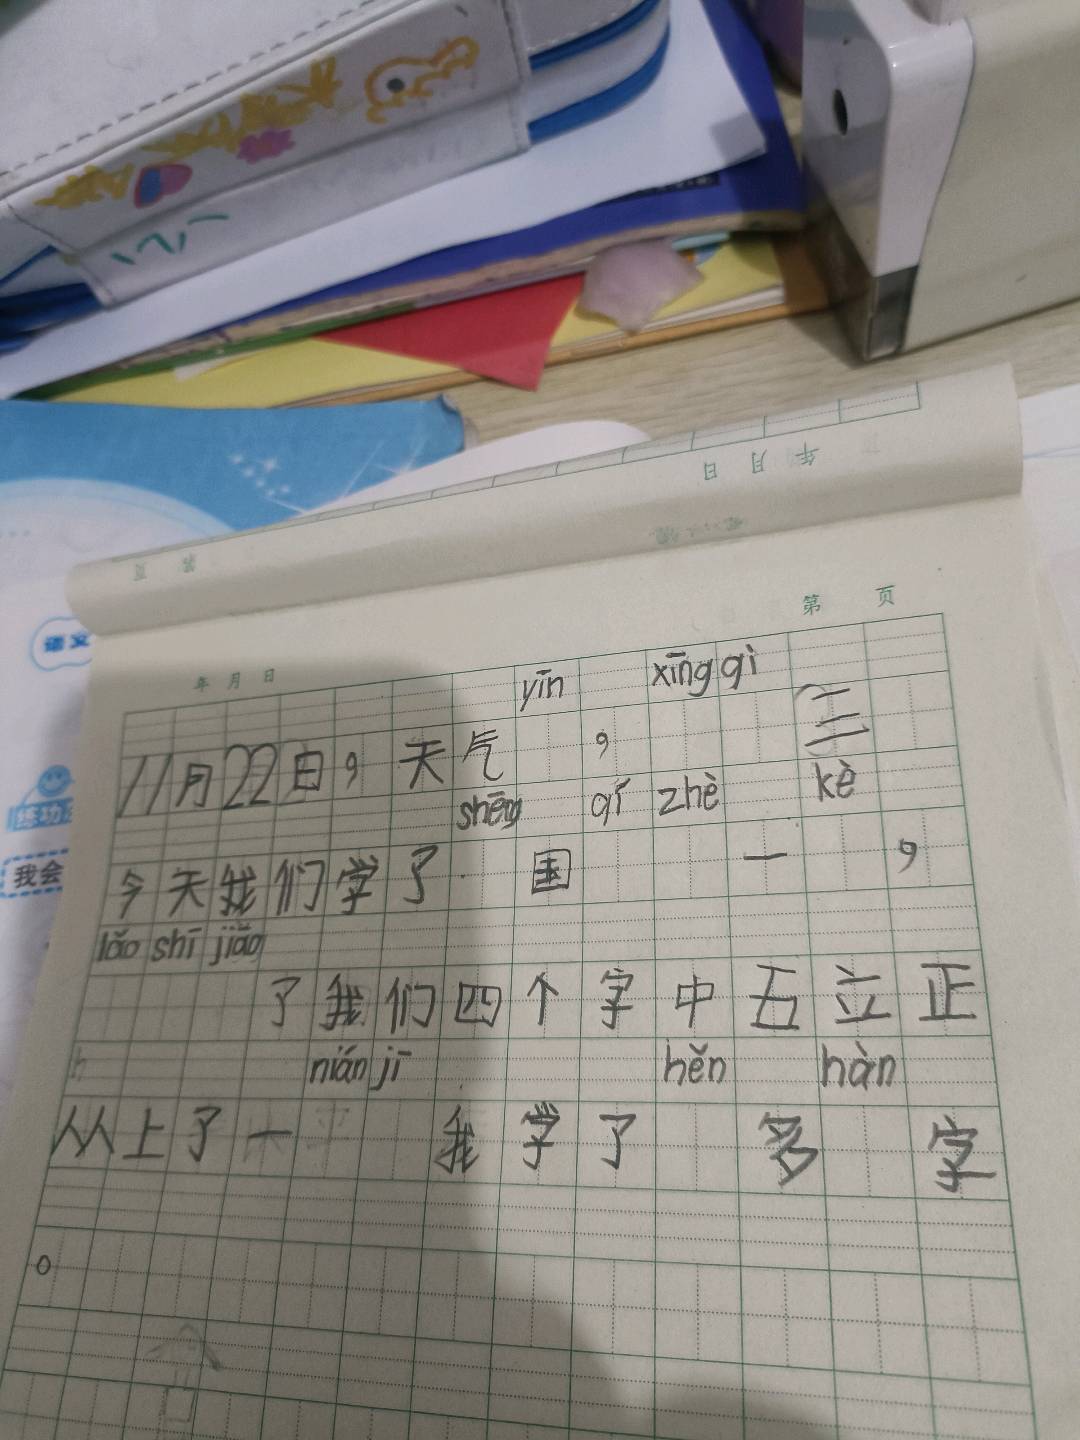 语文
练功
我会
年 月 日
第 页
年 月 日
yīn xīng qì
11月22日，天气 ， 三
shēng qí zhè kè
今天我们学了 国 一 ，
lǎo shī jiāo
了我们四个字中五立正
nián jī hěn hàn
从从上了一 我学了 多 字
。